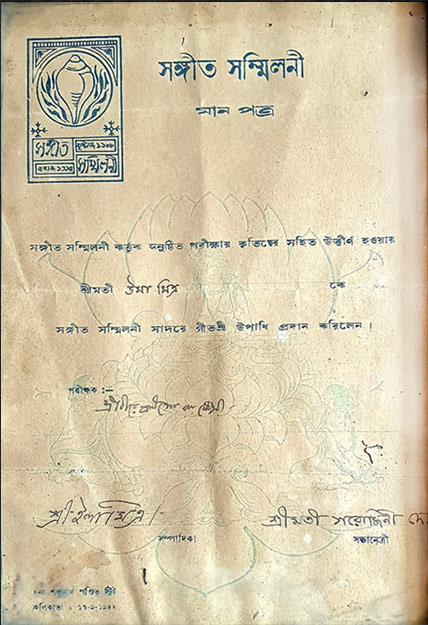 সঙ্গীত সম্মিলনী
মান পত্র
সঙ্গীত
খৃষ্টাব্দ ১৯০৮
সম্মিলনী
সঙ্গীত সম্মিলনী কর্ত্তৃক অনুষ্ঠিত পরীক্ষায় কৃতিত্বের সহিত উত্তীর্ণ হওয়ায়
শ্রীমতী উমা মিত্র কে
সঙ্গীত সম্মিলনী সাদরে গীতশ্রী উপাধি প্রদান করিলেন।
পরীক্ষক :—
শ্রী
শ্রী ইলা মিত্র।
শ্রীমতী সরোজিনী দে
সম্পাদিকা
সভানেত্রী
পণ্ডিত স্ট্রীট
কলিকাতা :